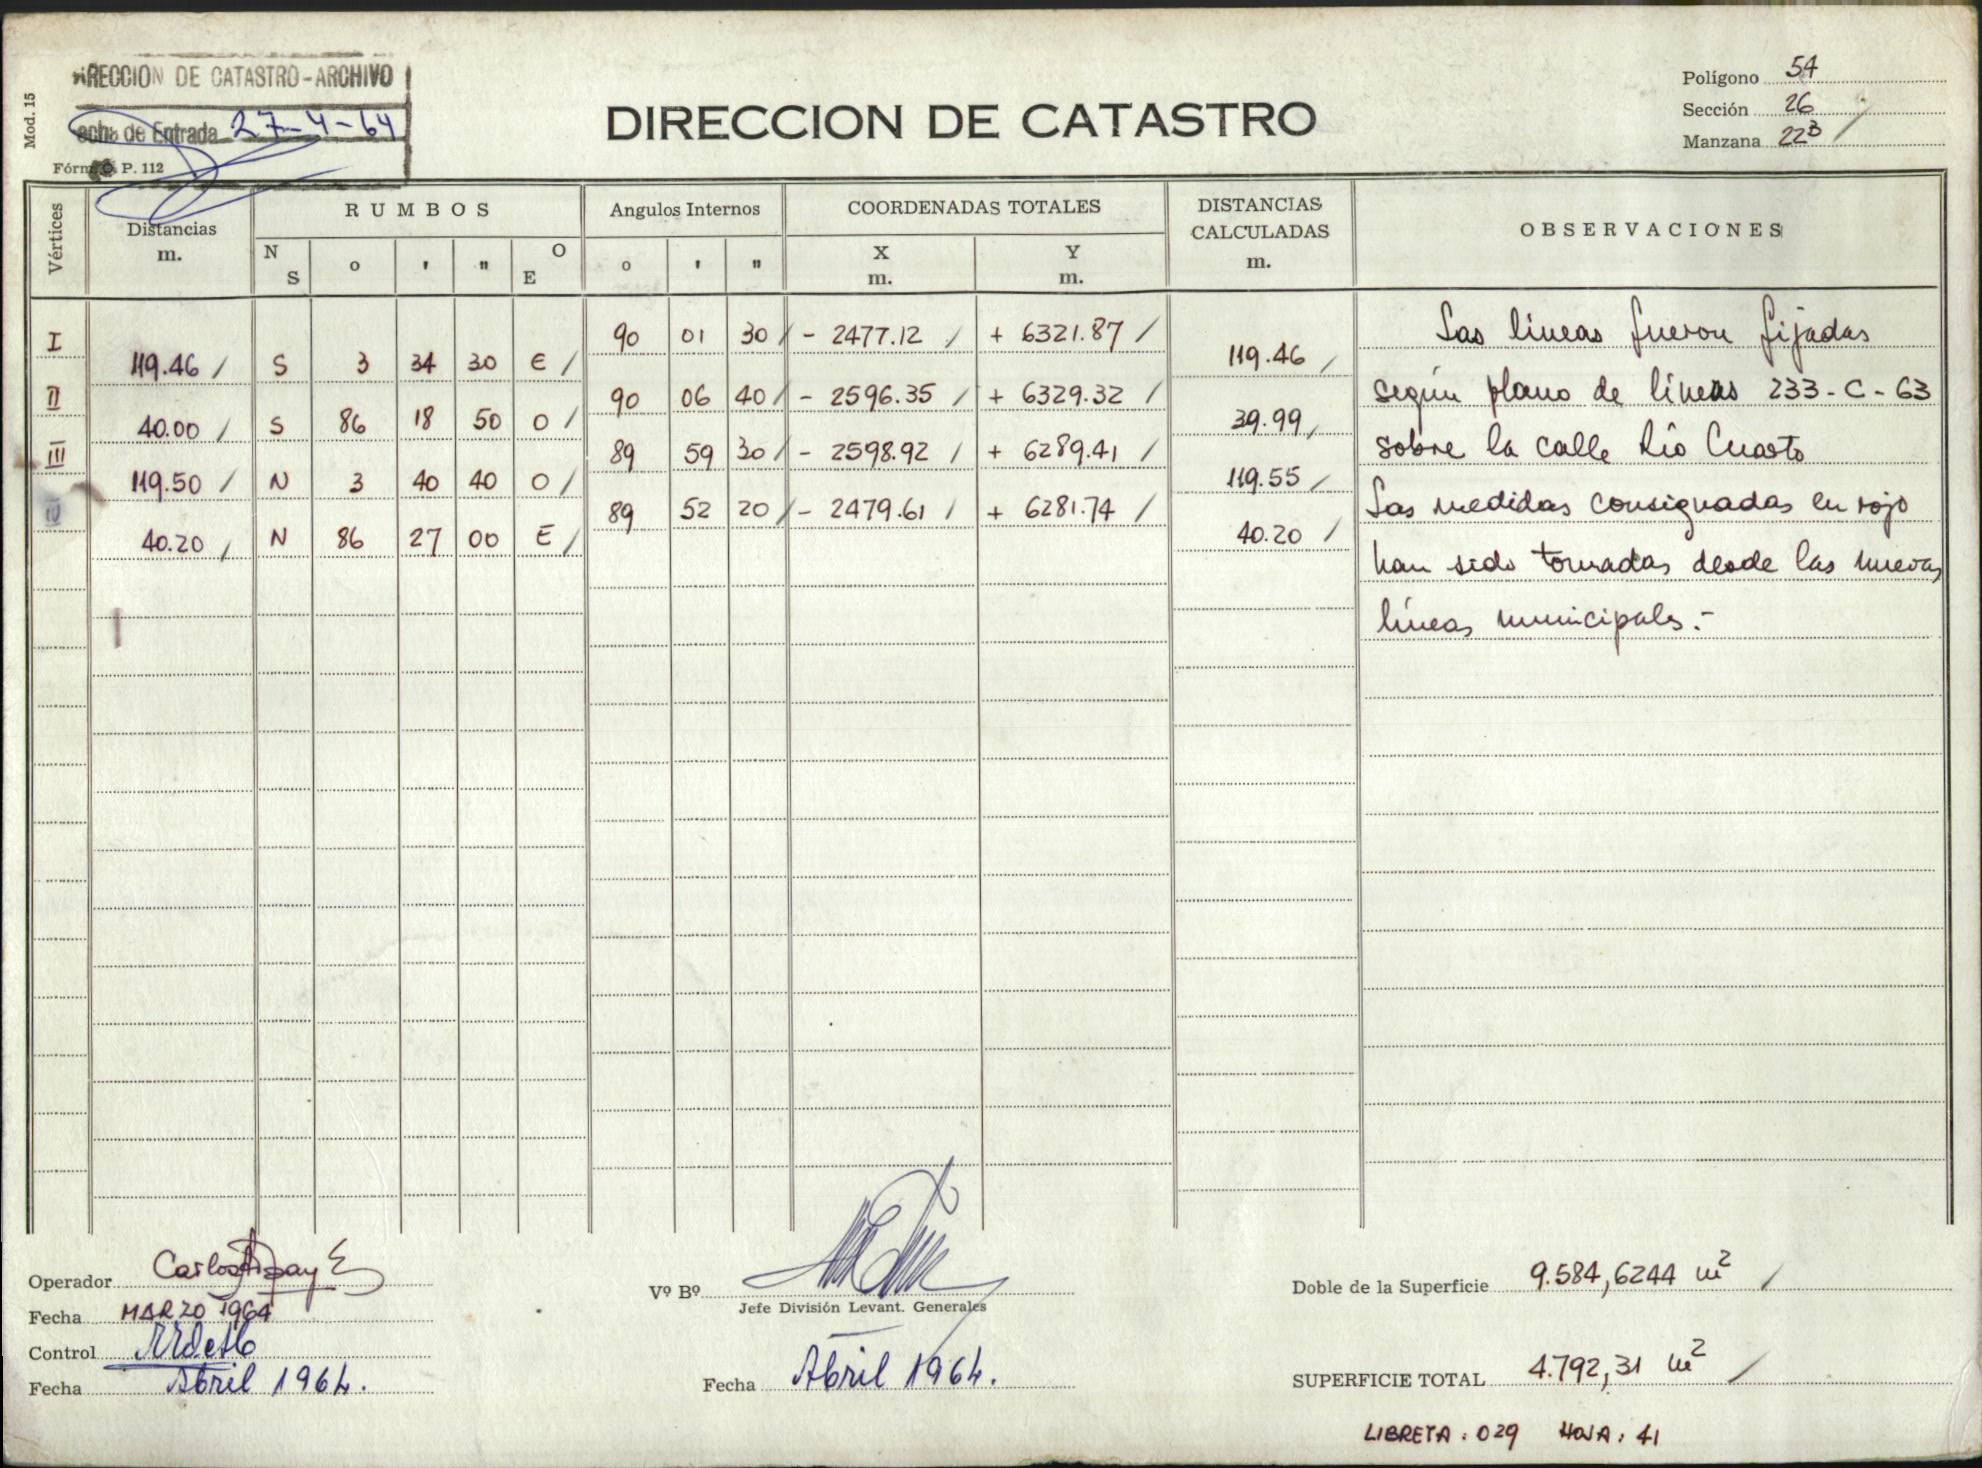 DIRECCION DE CATASTRO-ARCHIVO
Fecha de Entrada 27-4-64
Mod. 15
Fórm. O. P. 112
DIRECCION DE CATASTRO
Polígono 54
Sección 26
Manzana 22B
Vértices
Distancias
m.
RUMBOS
N S ° ' " O E
Angulos Internos
° ' "
COORDENADAS TOTALES
X Y
m. m.
DISTANCIAS
CALCULADAS
m.
OBSERVACIONES
I 90 01 30 - 2477.12 + 6321.87
119.46 S 3 34 30 E 119.46
II 90 06 40 - 2596.35 + 6329.32
40.00 S 86 18 50 O 39.99
III 89 59 30 - 2598.92 + 6289.41
119.50 N 3 40 40 O 119.55
IV 89 52 20 - 2479.61 + 6281.74
40.20 N 86 27 00 E 40.20
Las líneas fueron fijadas
según plano de líneas 233-C-63
sobre la calle Río Cuarto
Las medidas consignadas en rojo
han sido tomadas desde las nuevas
líneas municipales.-
Operador Carlos
Fecha MARZO 1964
Control
Fecha Abril 1964.
Vº Bº
Jefe División Levant. Generales
Fecha Abril 1964.
Doble de la Superficie 9.584,6244 m²
SUPERFICIE TOTAL 4.792,31 m²
LIBRETA: 029 HOJA: 41